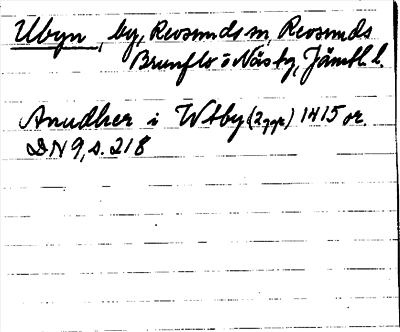 Ubyn, by, Revsunds sn, Revsunds
Brunflo o Näs tg, Jämtl. l.
Anudher i Wtby (2 ggr) 1415 or.
DN 9, s. 218